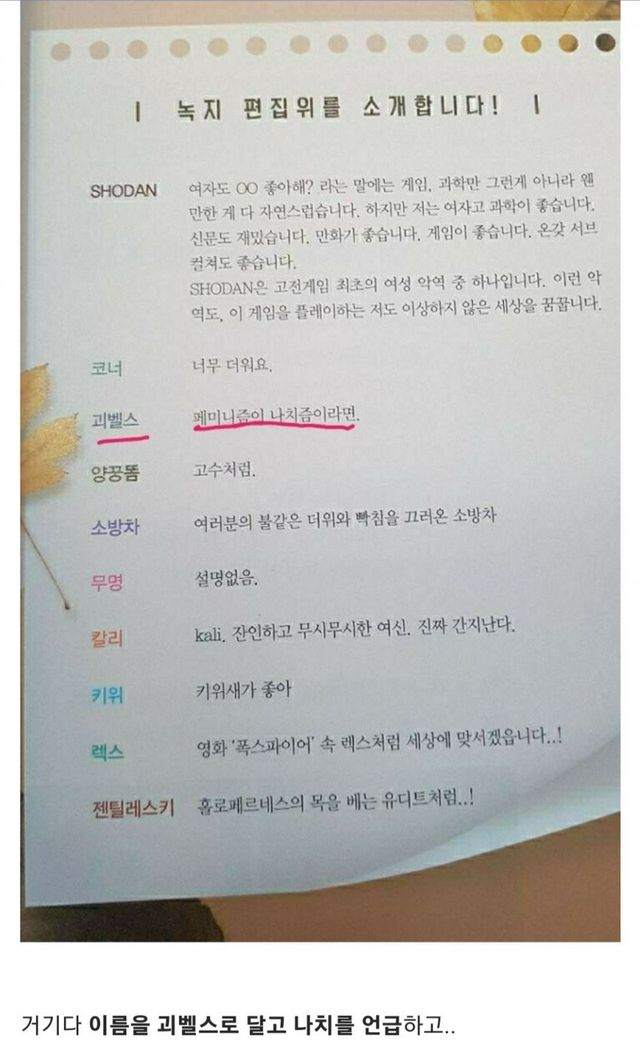 | 녹지 편집위를 소개합니다! |
SHODAN 여자도 OO 좋아해? 라는 말에는 게임, 과학만 그런게 아니라 웬
만한 게 다 자연스럽습니다. 하지만 저는 여자고 과학이 좋습니다.
신문도 재밌습니다. 만화가 좋습니다. 게임이 좋습니다. 온갖 서브
컬쳐도 좋습니다.
SHODAN은 고전게임 최초의 여성 악역 중 하나입니다. 이런 악
역도, 이 게임을 플레이하는 저도 이상하지 않은 세상을 꿈꿉니다.
코너 너무 더워요.
괴벨스 페미니즘이 나치즘이라면.
양꿍똠 고수처럼.
소방차 여러분의 불같은 더위와 빡침을 끄러온 소방차
무명 설명없음.
칼리 kali. 잔인하고 무시무시한 여신. 진짜 간지난다.
키위 키위새가 좋아
렉스 영화 ‘폭스파이어’ 속 렉스처럼 세상에 맞서겠읍니다..!
젠틸레스키 홀로페르네스의 목을 베는 유디트처럼..!
거기다 이름을 괴벨스로 달고 나치를 언급하고..